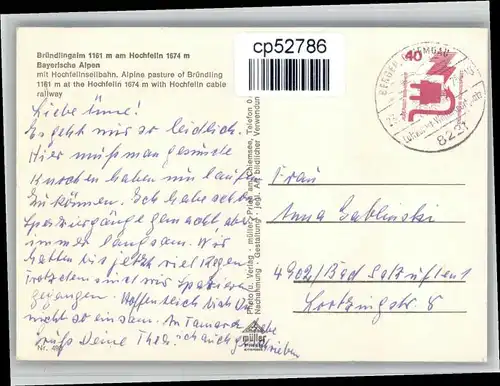 Bründlingalm 1161 m am Hochfelln 1674 m
Bayerische Alpen
mit Hochfellnseilbahn. Alpine pasture of Bründling
1161 m at the Hochfelln 1674 m with Hochfelln cable
railway
cp52786
40
BERGEN, CHIEMGAU
8221
Liebe Anne!
Es geht mir so leidlich.
Hier muß man gesunde
Knochen haben um laufen
zu können. Ich habe schon
Spaziergänge gemacht aber
immer langsam. Wir
hatten bis jetzt viel Regen
Trotzdem sind wir spazieren
gegangen. Hoffentlich bist Du
nicht so einsam. An Tamara habe
ich auch geschrieben
Gruß Deine
Nr. 490
Photo u. Verlag - müller, Prien am Chiemsee, Telefon 0
Nachahmung - Gestaltung - jegl. Art bildlicher Verwendun
müller
Frau
Anna Gablinski
4902/Bad Salzuflen 1
Lortzingstr. 8